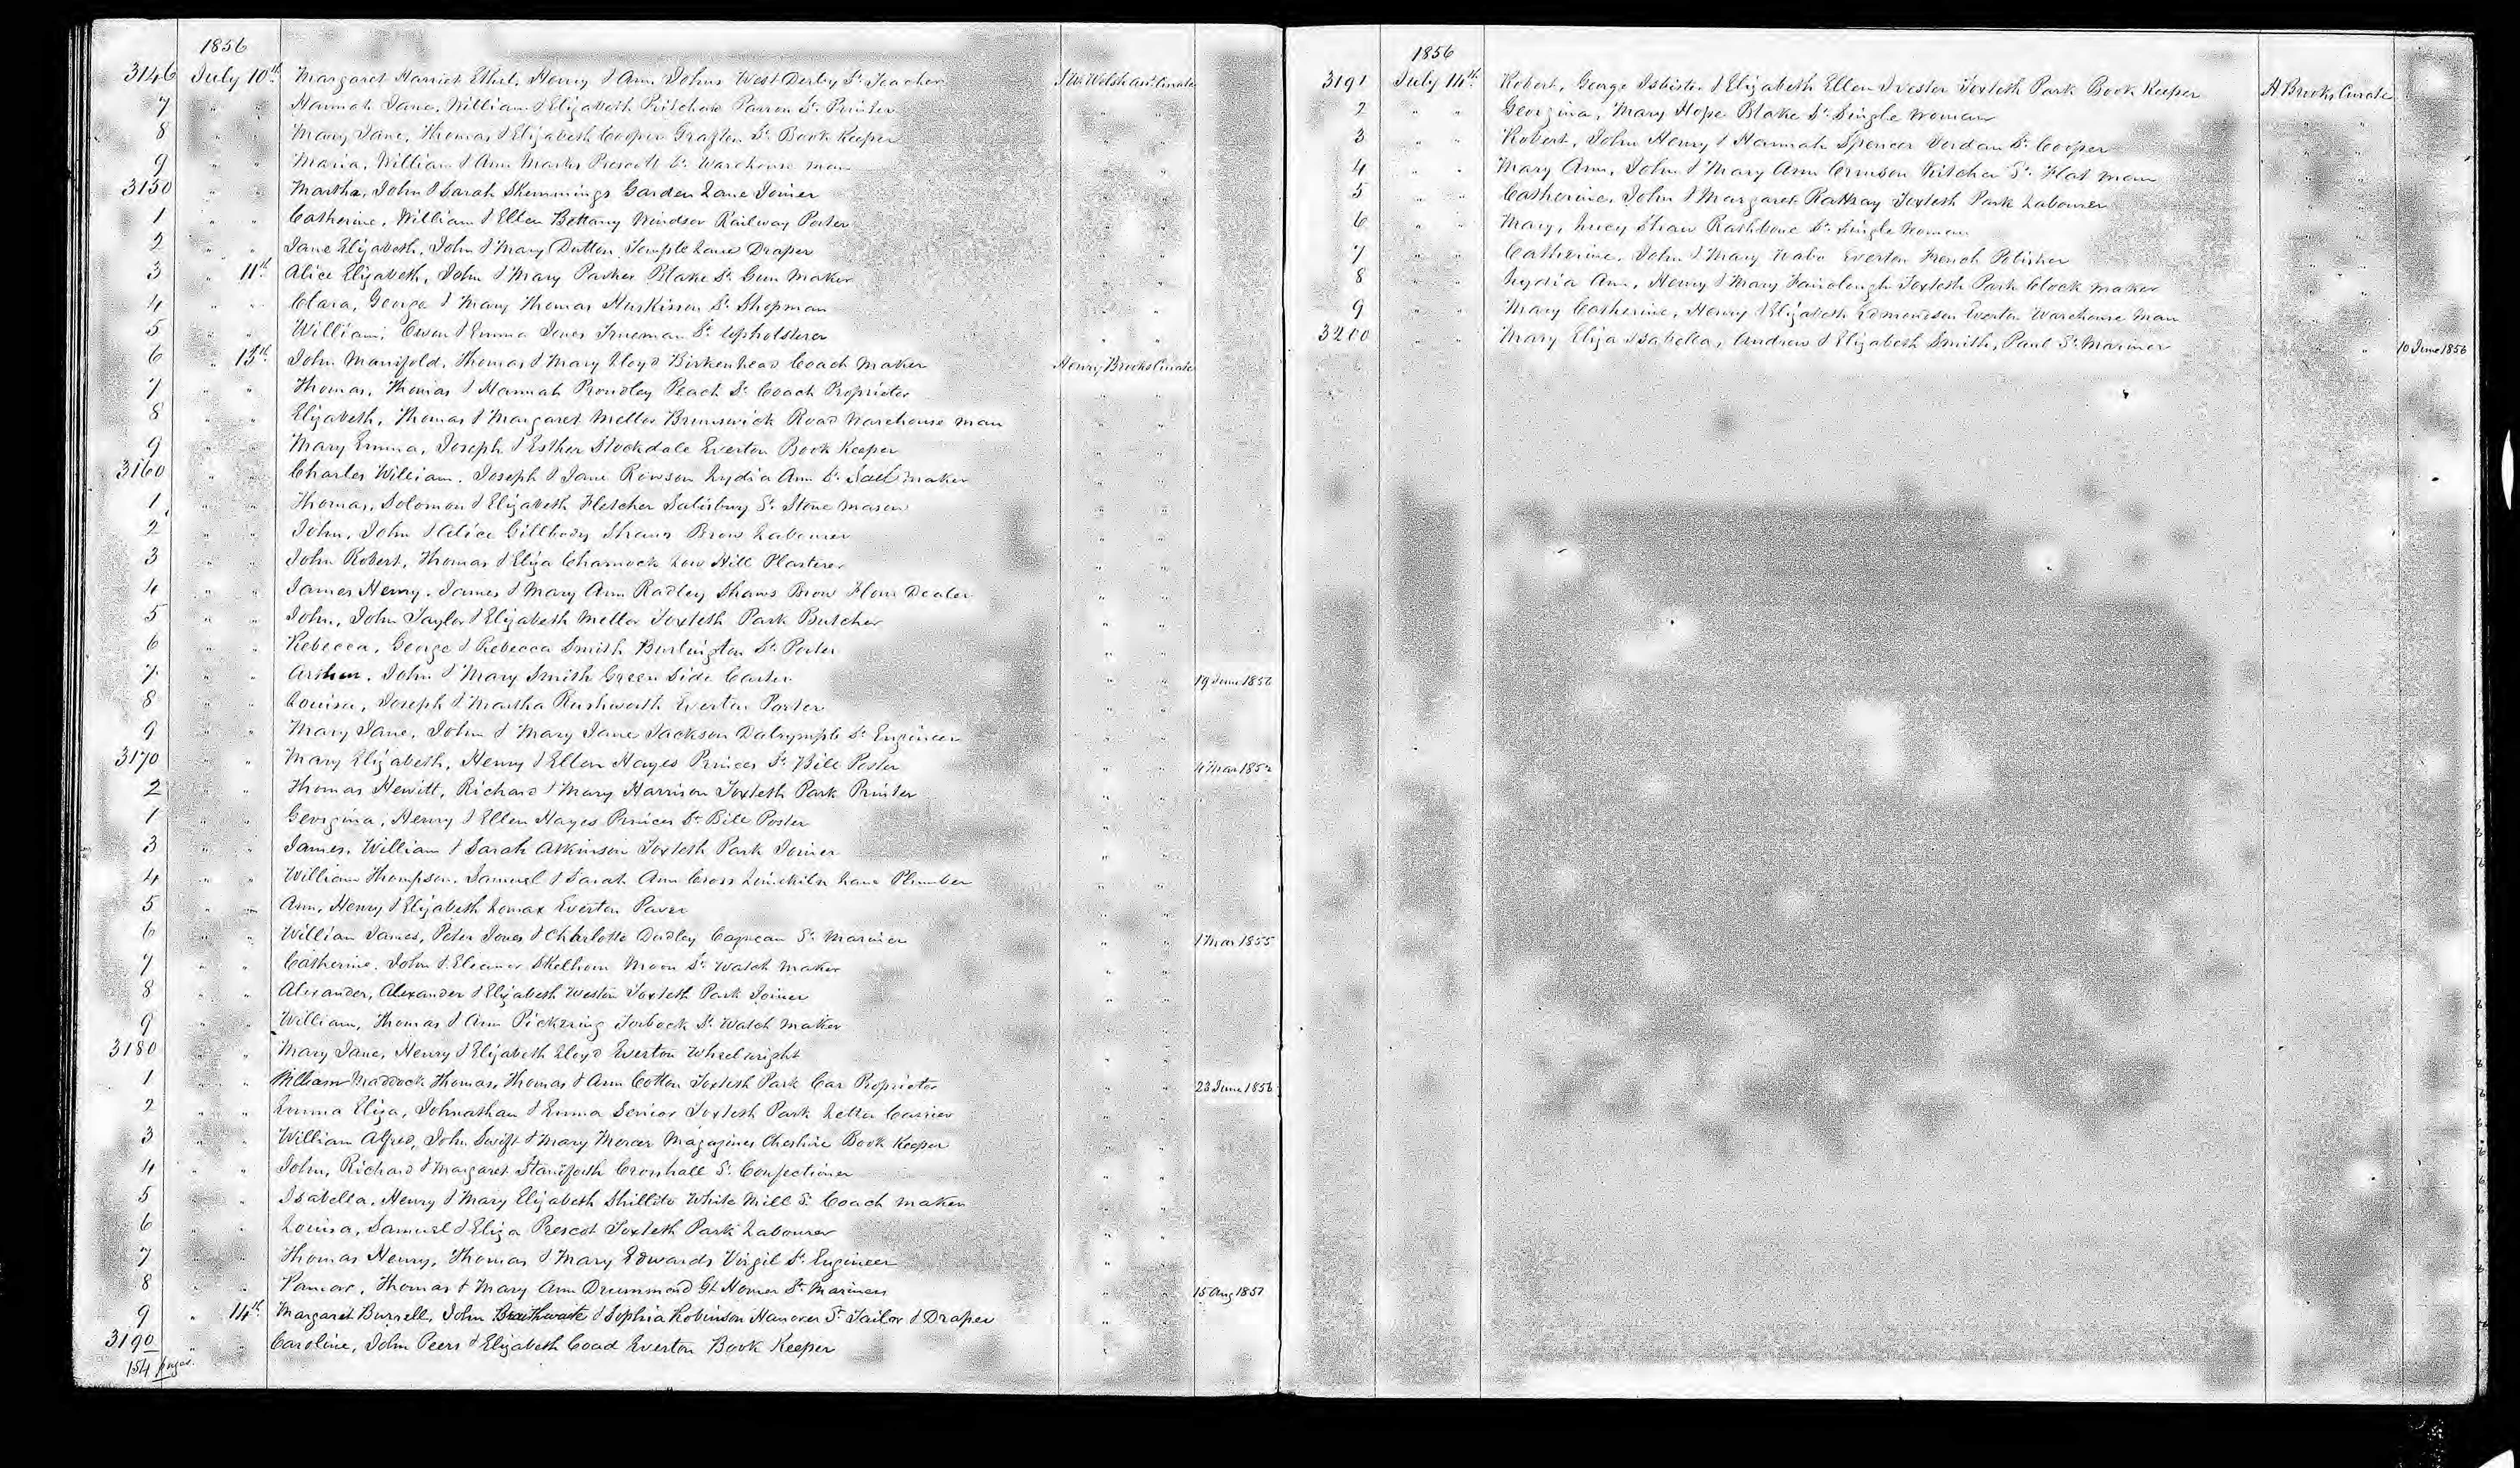 1856
3146 July 10th Margaret Harriet Ethel, Henry & Ann Johns West Derby St Teacher Curate
7 " " Hannah Jane, William & Elizabeth Pritchard St Printer " "
8 " " Mary Jane, Thomas & Elizabeth Cooper Grafton St Book Keeper " "
9 " " Maria, William & Ann Prescott St Warehouse man " "
3150 " " Martha, John & Sarah Skemmings Garden Lane Joiner " "
1 " " Catherine, William & Ellen Bettany Windsor Railway Porter " "
2 " " Jane Elizabeth, John & Mary Dutton Temple Lane Draper " "
3 " 11th Alice Elizabeth, John & Mary Parker Blake St Gun Maker " "
4 " " Clara, George & Mary Thomas Huskisson St Shopman " "
5 " " William, Owen & Emma Jones Trueman St Upholsterer " "
6 " 13th John Manifold, Thomas & Mary Lloyd Birkenhead Coach Maker Henry Brooks Curate
7 " " Thomas, Thomas & Hannah Proudley Peach St Coach Proprietor " "
8 " " Elizabeth, Thomas & Margaret Mellor Brunswick Road Warehouse man " "
9 " " Mary Emma, Joseph & Esther Stockdale Everton Book Keeper " "
3160 " " Charles William, Joseph & Jane Rowson Lydia Ann St Sail Maker " "
1 " " Thomas, Solomon & Elizabeth Fletcher Salisbury St Stone Mason " "
2 " " John, John & Alice Gillbody Shaws Brow Labourer " "
3 " " John Robert, Thomas & Eliza Charnock Low Hill Plasterer " "
4 " " James Henry, James & Mary Ann Radley Shaws Brow Flour Dealer " "
5 " " John, John Taylor & Elizabeth Mellor Toxteth Park Butcher " "
6 " " Rebecca, George & Rebecca Smith Burlington St Porter " "
7 " " Arthur, John & Mary Smith Green Side Carter " " 19 June 1856
8 " " Louisa, Joseph & Martha Rushworth Everton Porter " "
9 " " Mary Jane, John & Mary Jane Jackson Dalrymple St Engineer " "
3170 " " Mary Elizabeth, Henry & Ellen Hayes Princes St Bill Poster " " Mar 1852
2 " " Thomas Hewitt, Richard & Mary Harrison Toxteth Park Printer " "
1 " " Georgina, Henry & Ellen Hayes Princes St Bill Poster " "
3 " " James, William & Sarah Atkinson Toxteth Park Joiner " "
4 " " William Thompson, Samuel & Sarah Ann Cross Limekiln Lane Plumber " "
5 " " Ann, Henry & Elizabeth Lomax Everton Paver " "
6 " " William James, Peter Jones & Charlotte Dudley St Mariner " " 1 Mar 1855
7 " " Catherine, John & Eleanor Skelhorn Moon St Watch Maker " "
8 " " Alexander, Alexander & Elizabeth Weston Toxteth Park Joiner " "
9 " " William, Thomas & Ann Pickering Torbock St Watch Maker " "
3180 " " Mary Jane, Henry & Elizabeth Lloyd Everton Wheelwright " "
1 " " William Maddock Thomas, Thomas & Ann Cotton Toxteth Park Car Proprietor " " 23 June 1856
2 " " Emma Eliza, Johnathan & Emma Senior Toxteth Park Letter Carrier " "
3 " " William Alfred, John Swift & Mary Mercer Magazines Cheshire Book Keeper " "
4 " " John, Richard & Margaret Staniforth Crosshall St Confectioner " "
5 " " Isabella, Henry & Mary Elizabeth Shillito White Mill St Coach Maker " "
6 " " Louisa, Samuel & Eliza Prescot Toxteth Park Labourer " "
7 " " Thomas Henry, Thomas & Mary Edwards Virgil St Engineer " "
8 " " Thomas & Mary Ann Drummond Gt Homer St Mariner " " 15 Aug 1851
9 " 14th Margaret Burrell, John Braithwaite & Sophia Robinson Hanover St Tailor & Draper " "
3190 " " Caroline, John Peers & Elizabeth Coad Everton Book Keeper "
154 pages
1856
3191 July 14th Robert, George Isbister & Elizabeth Ellen Toxteth Park Book Keeper H Brooks Curate
2 " " Georgina, Mary Hope Blake St Single Woman " "
3 " " Robert, John Henry & Hannah Spencer St Cooper " "
4 " " Mary Ann, John & Mary Ann Pitcher St Flat man " "
5 " " Catherine, John & Margaret Rattray Toxteth Park Labourer " "
6 " " Mary, Lucy Shaw Rathbone St Single Woman " "
7 " " Catherine, John & Mary Everton French Polisher " "
8 " " Lydia Ann, Henry & Mary Fairclough Toxteth Park Clock Maker " "
9 " " Mary Catherine, Henry & Elizabeth Edmondson Everton Warehouse Man " "
3200 " " Mary Eliza Isabella, Andrew & Elizabeth Smith, Paul St Mariner " 10 June 1856